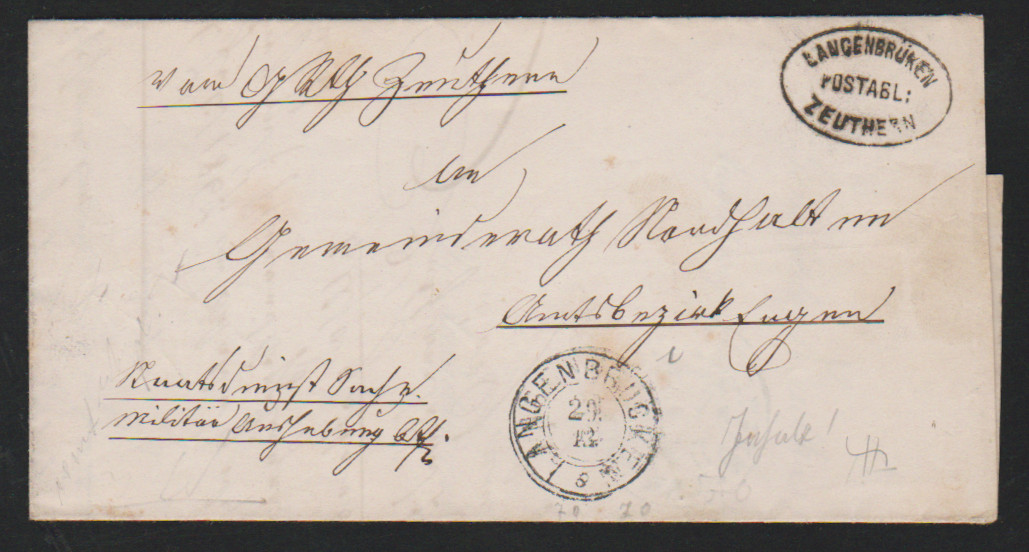 LANGENBRÜKEN
POSTABL:
ZEUTHERN
vom GRth Zeuthern
An
Gemeinderath Nordhalten
Amtsbezirk Engen
Staatsdienst Sache.
Militär Aushebung
LANGENBRUCKEN
29
12
8
Inhalt!